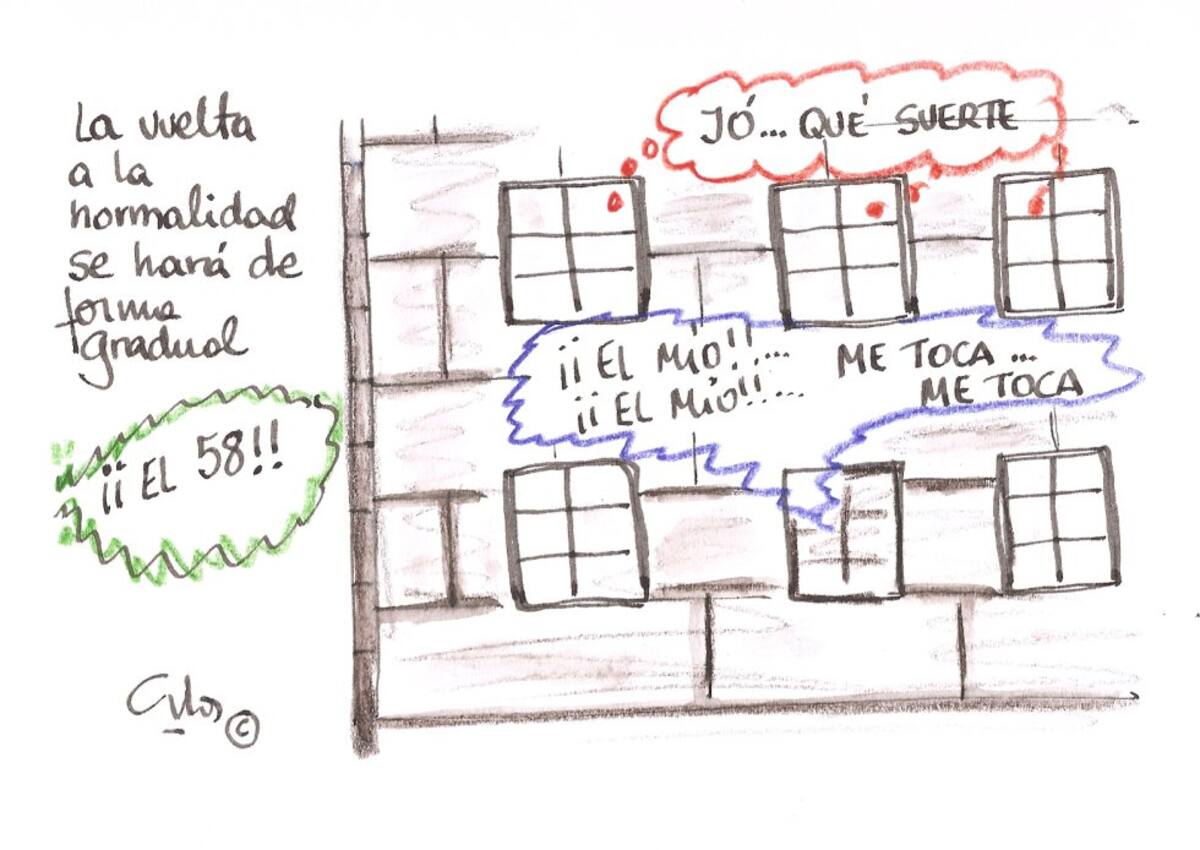 La vuelta
a la
normalidad
se hará de
forma
gradual
¡¡ EL 58!!
JÓ... QUÉ SUERTE
¡¡ EL MÍO!!... ME TOCA ...
¡¡ EL MÍO!!... ME TOCA
©